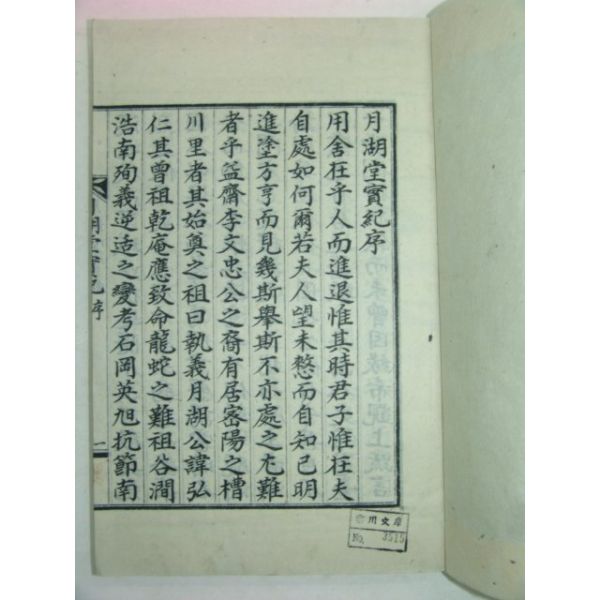 月湖堂實紀序
用舍在乎人而進退惟其時君子惟在夫
自處如何爾若夫人望未愁而自知已明
進塗方亨而見幾斯舉斯不亦處之尤難
者乎益齋李文忠公之裔有居密陽之槽
川里者其始奠之祖曰執義月湖公諱弘
仁其曾祖乾庵應致命龍蛇之難祖谷澗
浩南殉義逆适之變考石岡英旭抗節南
月湖堂實紀序
一
川文庫
No. 3515